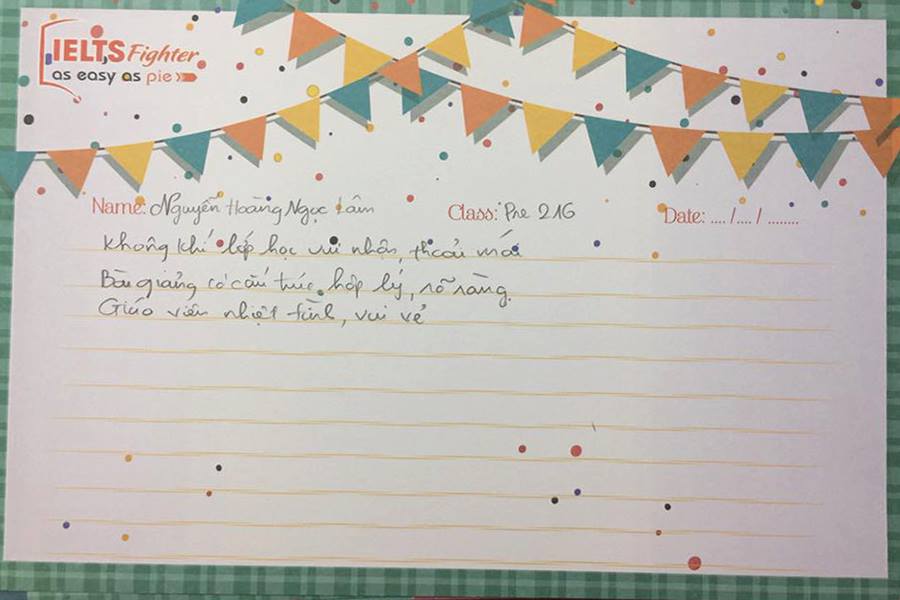 IELTS Fighter
as easy as pie
Name: Nguyễn Hoàng Ngọc Lâm Class: Pre 216 Date: .... /.... / ........
Không khí lớp học vui nhộn, thoải mái
Bài giảng có cấu trúc hợp lý, rõ ràng.
Giáo viên nhiệt tình, vui vẻ